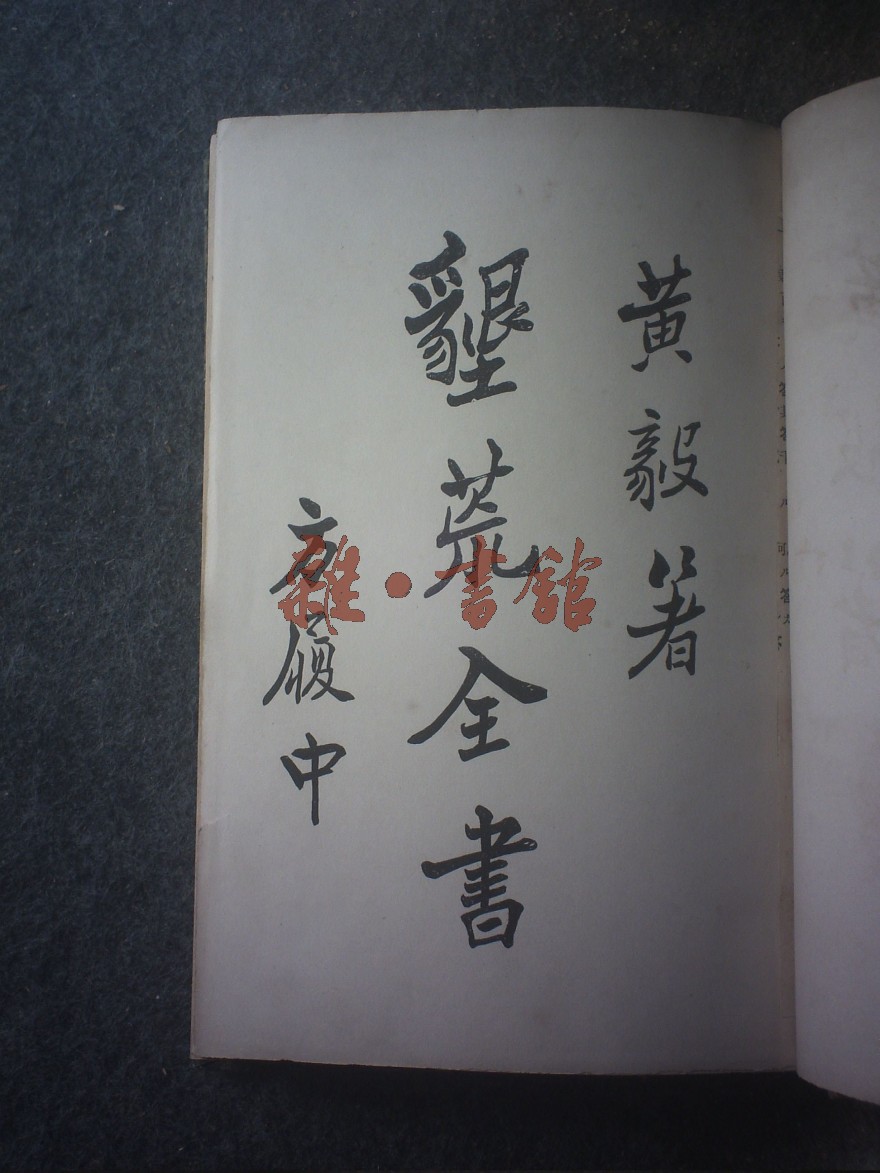 黄毅著
墾荒全書
方履中
雜·書館